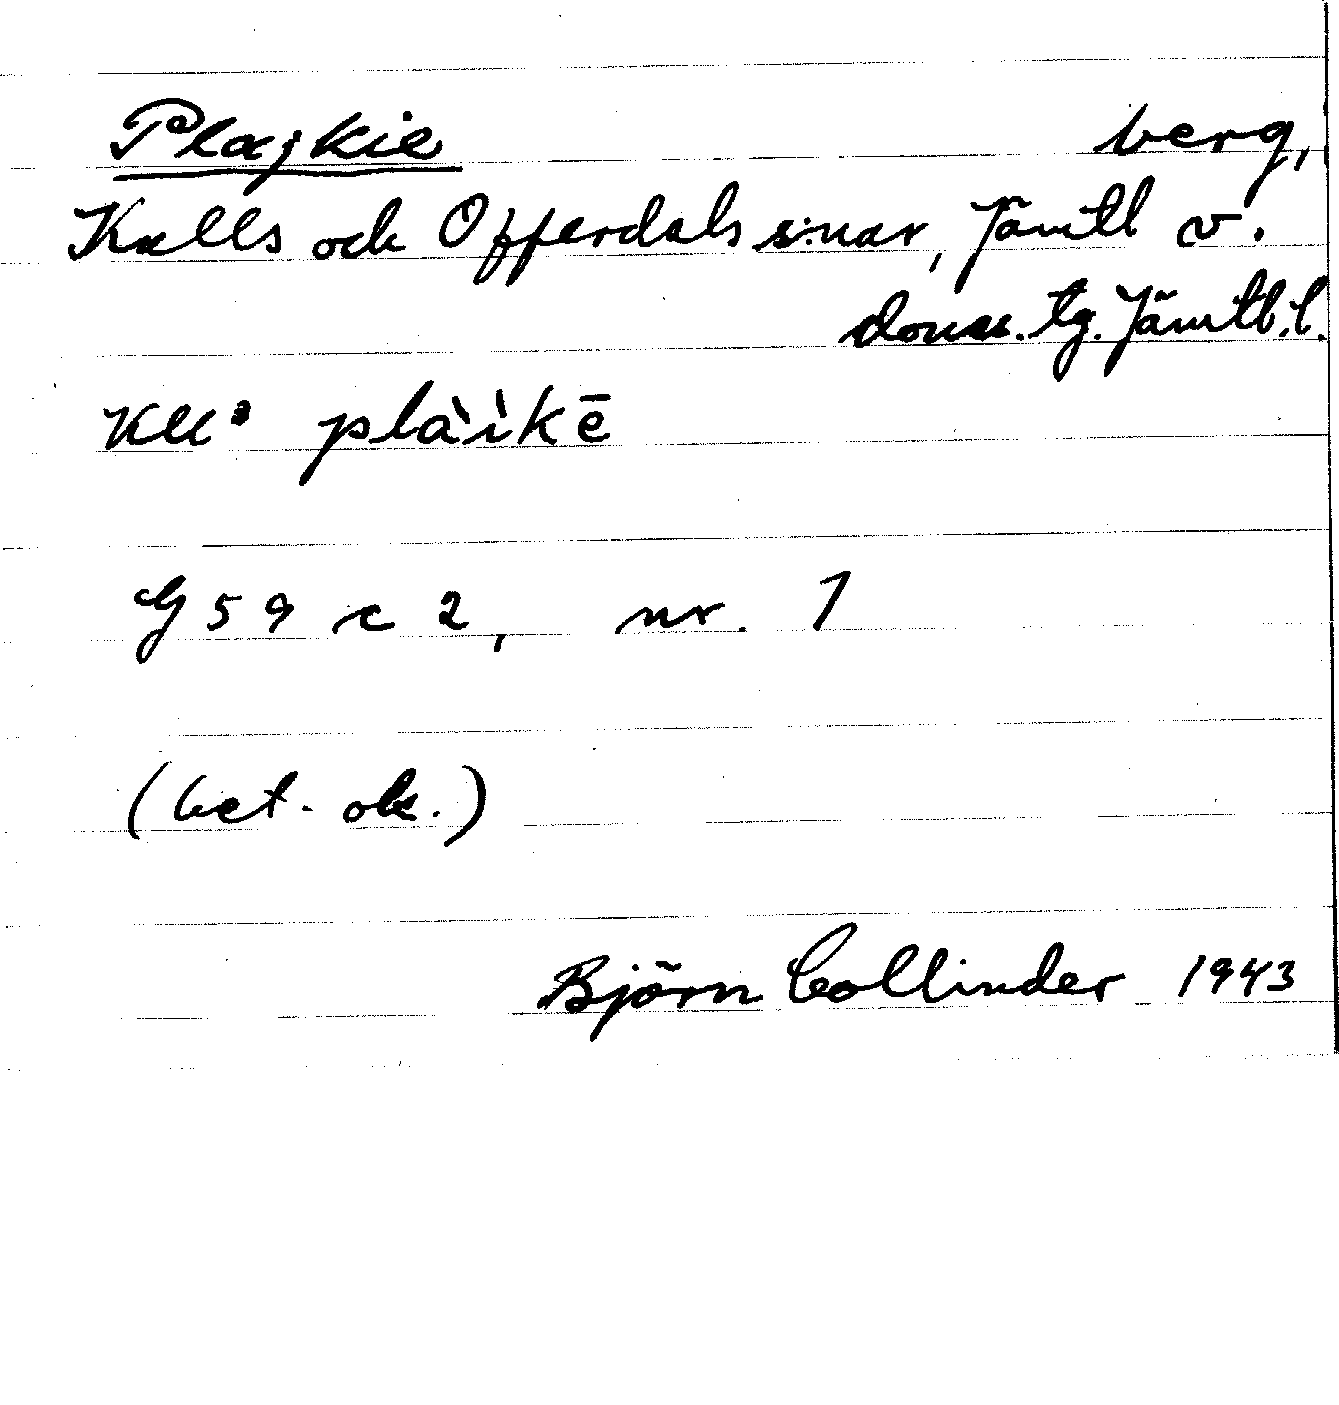 Plajkie berg,
Kalls och Offerdals s:nar, Jämtl v.
doms. tg. Jämtl. l.
Kll: plàìkē
G 59 c 2, nr. 1
(bet. ok.)
Björn Collinder 1943